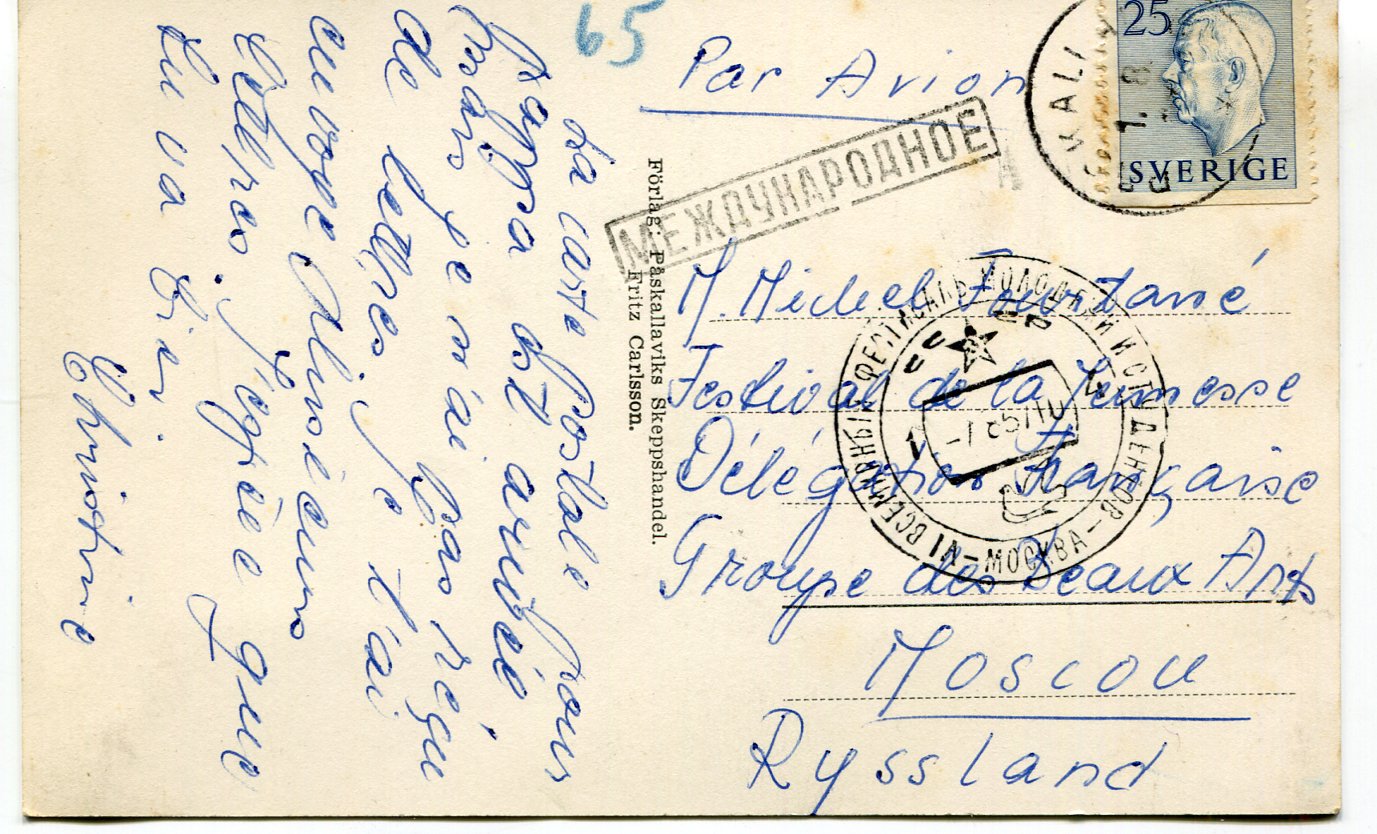 65
Par Avion
25
SVERIGE
МЕЖДУНАРОДНОЕ
La carte Postale pour
Pappa est arrivée
je n'ai pas reçu
de lettres. Je t'ai
envoyé plusieurs
lettres. J'espère que
tu va bien.
Christine
Förlag: Påskallaviks Skeppshandel.
Fritz Carlsson.
VI ВСЕМИРНЫЙ ФЕСТИВАЛЬ МОЛОДЕЖИ И СТУДЕНТОВ – МОСКВА –
M. Michel
Festival de la Jeunesse
Délégation Française
Groupe des Beaux Arts
Moscou
Ryssland